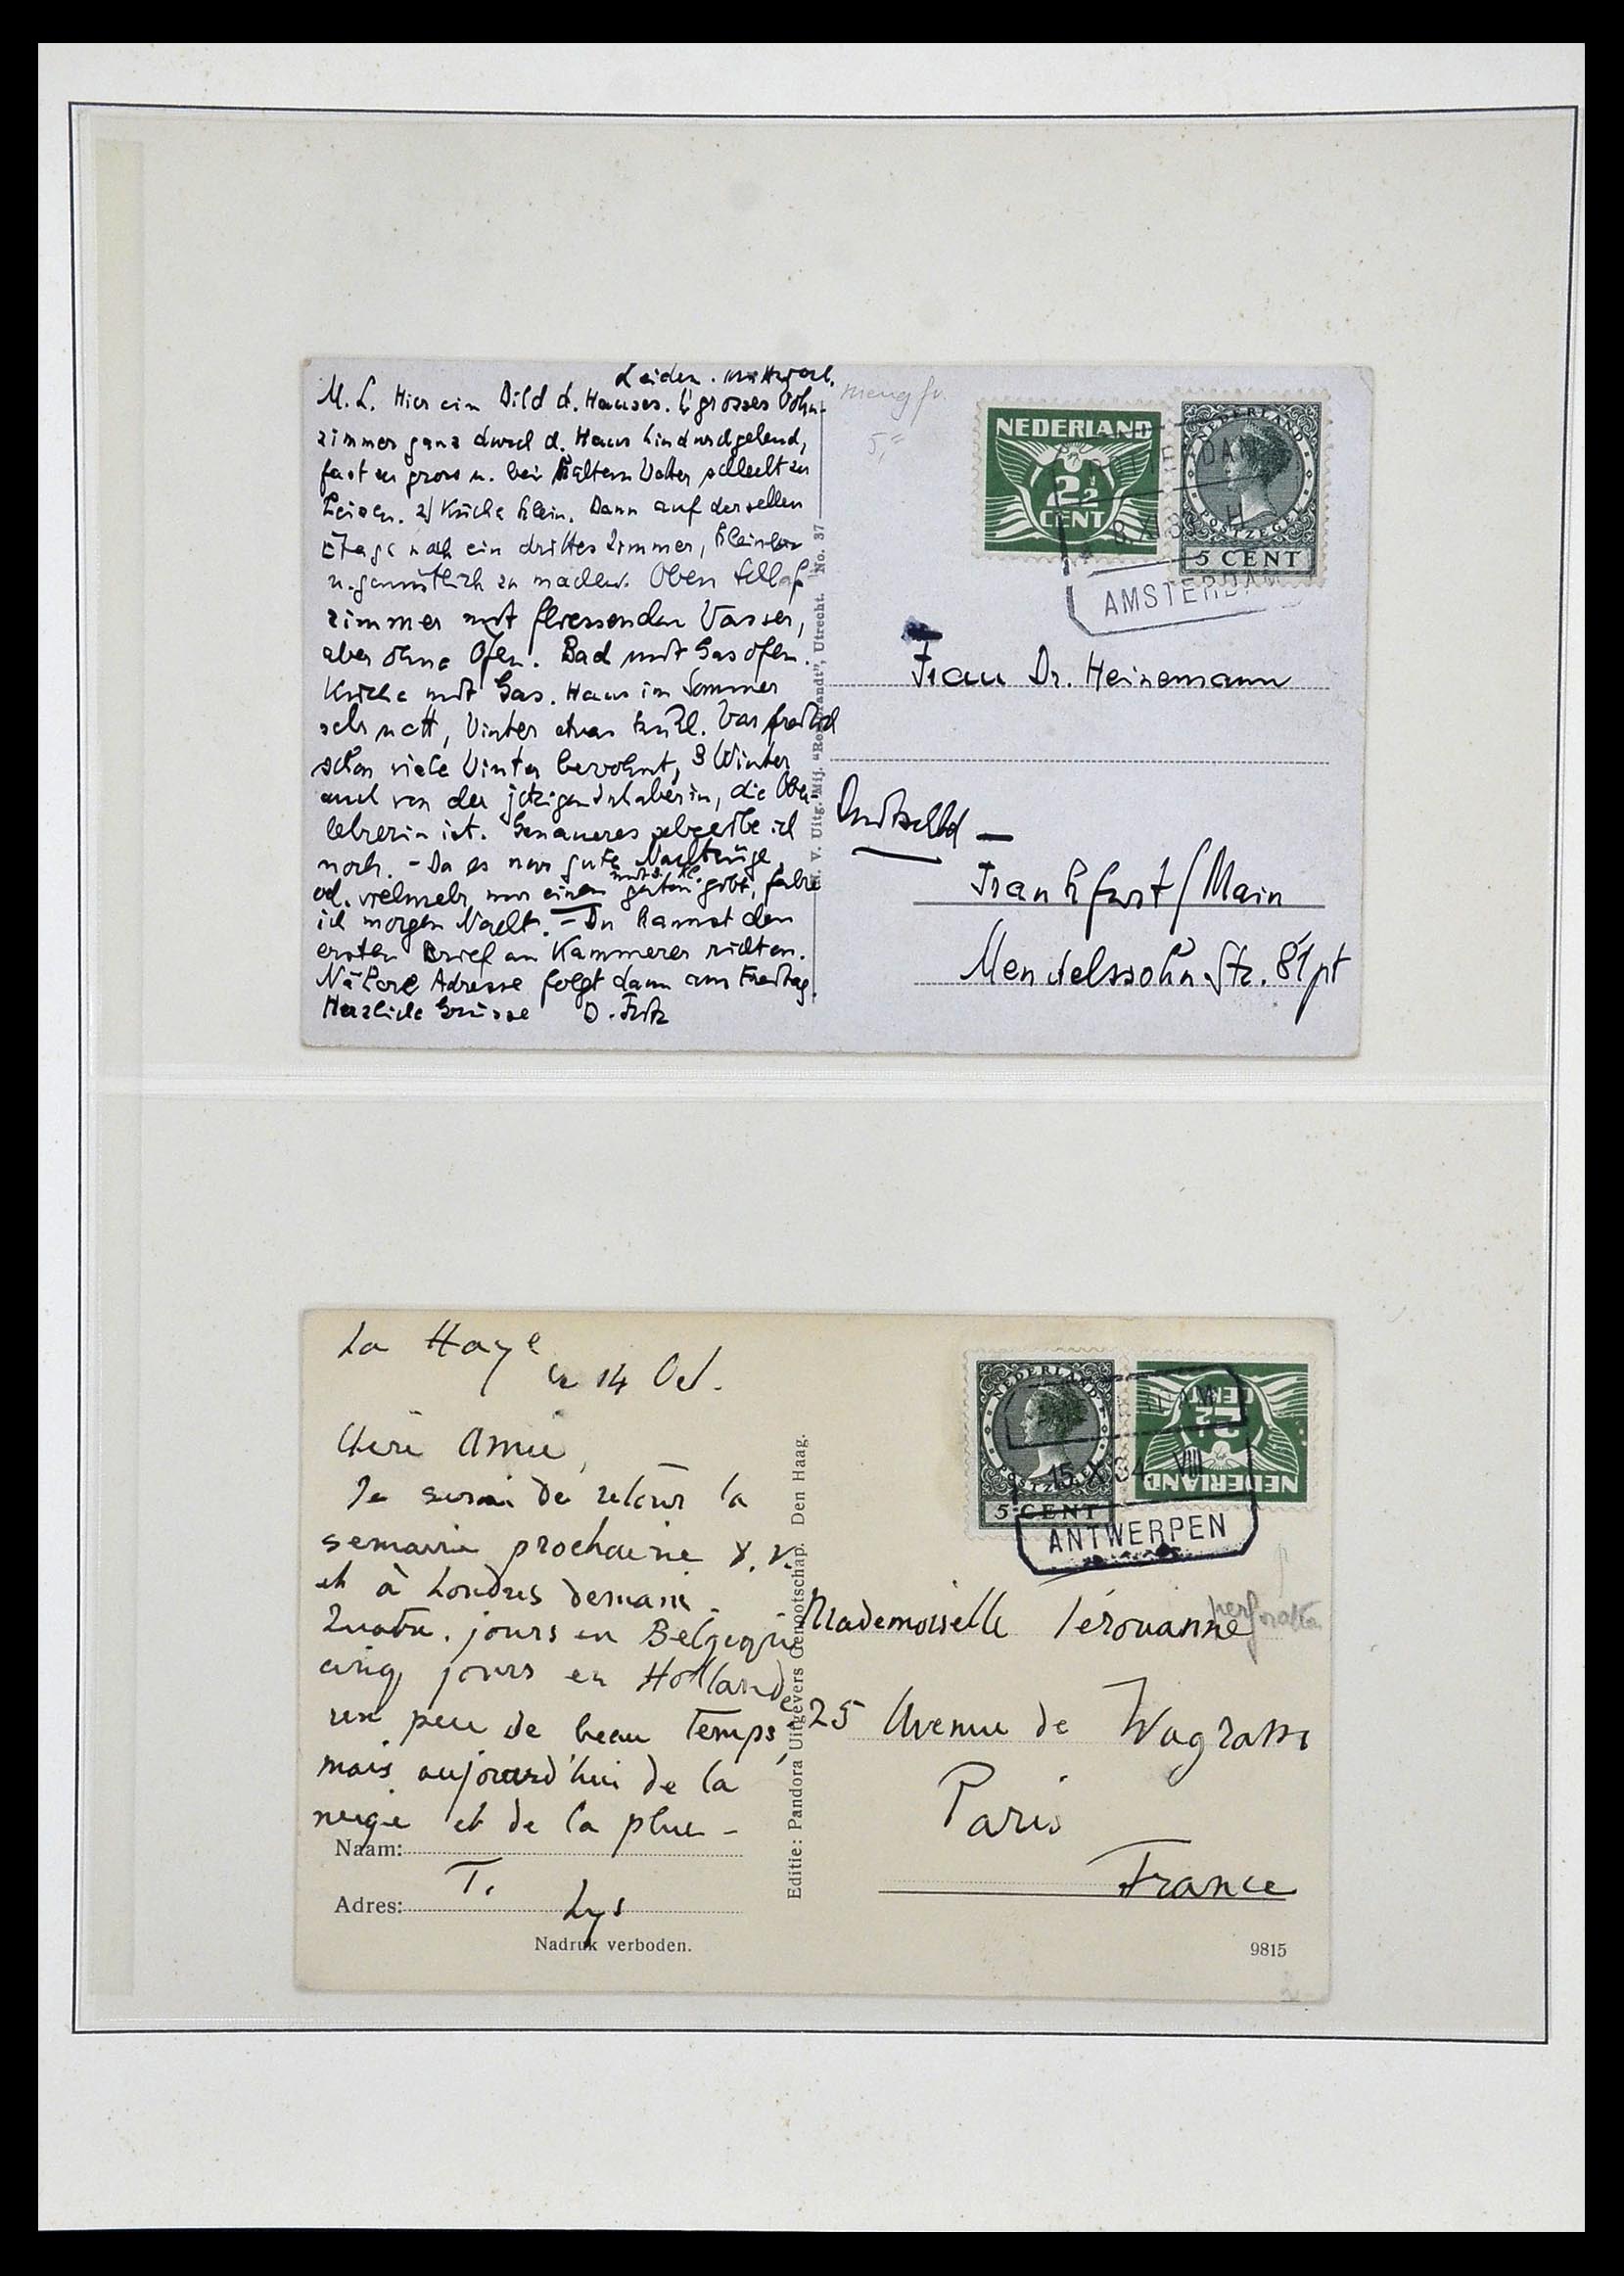 Leiden. Mittwoch.
M. L. Hier ein Bild d. Hauses. 1) grosses Wohn-
zimmer ganz durch d. Haus hindurchgehend,
fast zu gross u. bei kaltem Wetter schlecht zu
heizen. 2) Küche klein. Dann auf derselben
Etage noch ein drittes Zimmer, kleiner
u. gemütlich zu machen. Oben Schlaf
zimmer mit fliessendem Wasser,
aber ohne Ofen. Bad mit Gasofen.
Küche mit Gas. Haus im Sommer
sehr nett, Winter etwas kühl. War freilich
schon viele Winter bewohnt, 3 Winter
auch von der jetzigen Inhaberin, die Ober-
lehrerin ist. Genaueres schreibe ich
noch. - Da es nur gute Nachtzüge,
od. vielmehr nur einen guten gibt, fahre
ich morgen Nacht. - Du kannst den
ersten Brief an Kammerer richten.
Nähere Adresse folgt dann am Freitag.
Herzliche Grüsse D. Fritz
N. V. Uitg. Mij. "Rembrandt", Utrecht. No. 37
5,=
NEDERLAND
2½
CENT
NEDERLAND
POSTZEGEL
5 CENT
AMSTERDAM
Frau Dr. Heinemann
Deutschld
Frankfurt/Main
Mendelssohn Str. 81 pt
La Haye
le 14 Oct.
Chère Amie,
Je serai de retour la
semaine prochaine
et à Londres demain.
Quatre jours en Belgique
cinq jours en Hollande
un peu de beau temps,
mais aujourd'hui de la
neige et de la pluie -
Naam:
T.
Adres:
Lys
Nadruk verboden.
Editie: Pandora Uitgevers Genootschap. Den Haag.
NEDERLAND
POSTZEGEL
5 CENT
NEDERLAND
2½
CENT
15 X 34 VIII
ANTWERPEN
perforatie
Mademoiselle Térouanne
25 Avenue de Wagram
Paris
France
9815